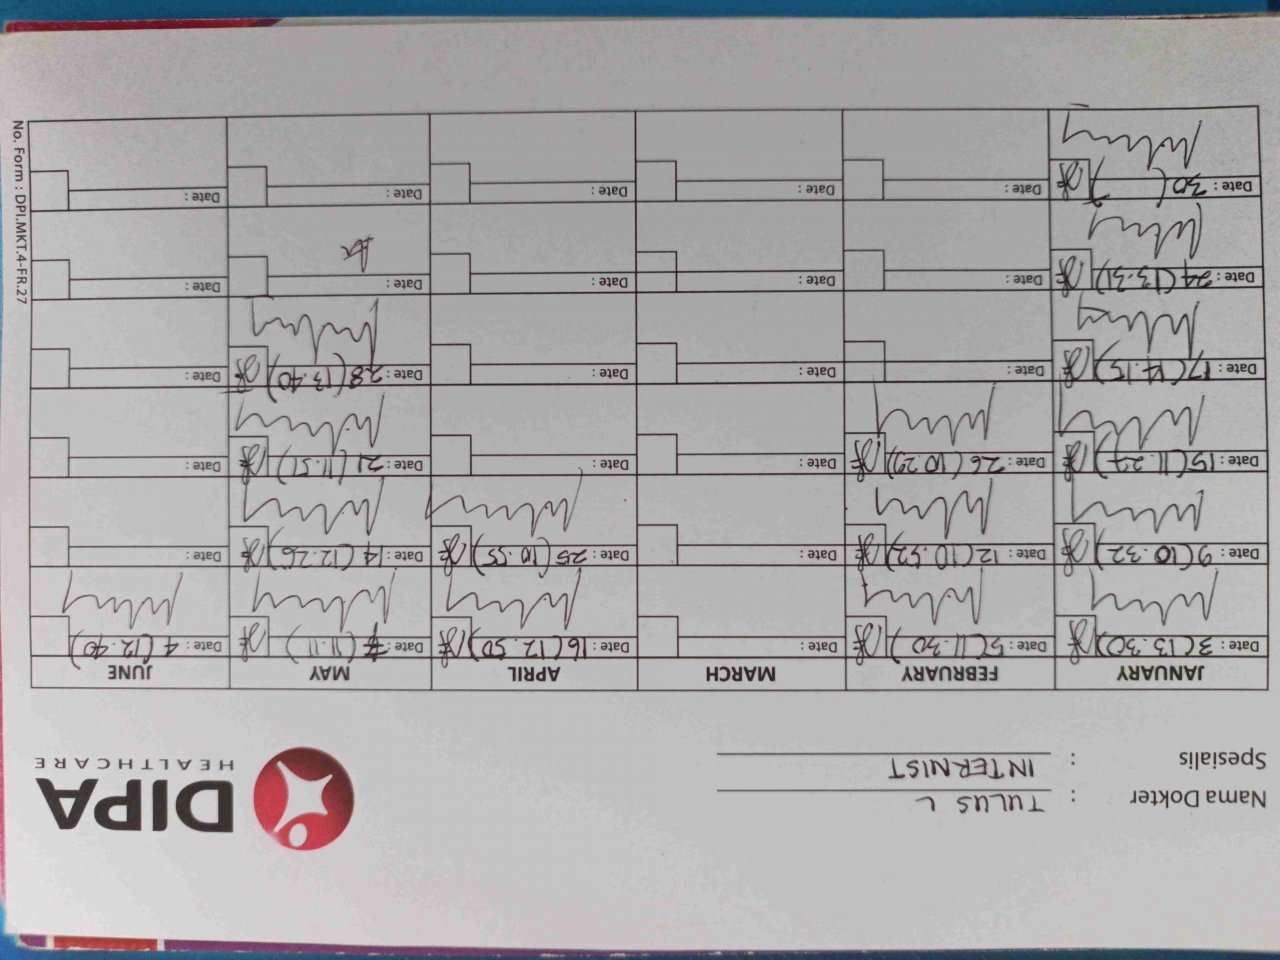 Nama Dokter : TULUS L
Spesialis : INTERNIST
DIPA
HEALTHCARE
JANUARY FEBRUARY MARCH APRIL MAY JUNE
Date : 3 (13.30) Date : 5 (11.30) Date : Date : 16 (12.50) Date : (11.11) Date : 4 (12.40)
Date : 9 (10.32) Date : 12 (10.52) Date : Date : 25 (10.55) Date : 14 (12.26) Date :
Date : 15 (11.27) Date : 26 (10.29) Date : Date : Date : 21 (11.51) Date :
Date : 17 (14.15) Date : Date : Date : Date : 28 (13.40) Date :
Date : 24 (13.31) Date : Date : Date : Date : Date :
Date : 30 ( ) Date : Date : Date : Date : Date :
No. Form : DPI.MKT.4-FR.27